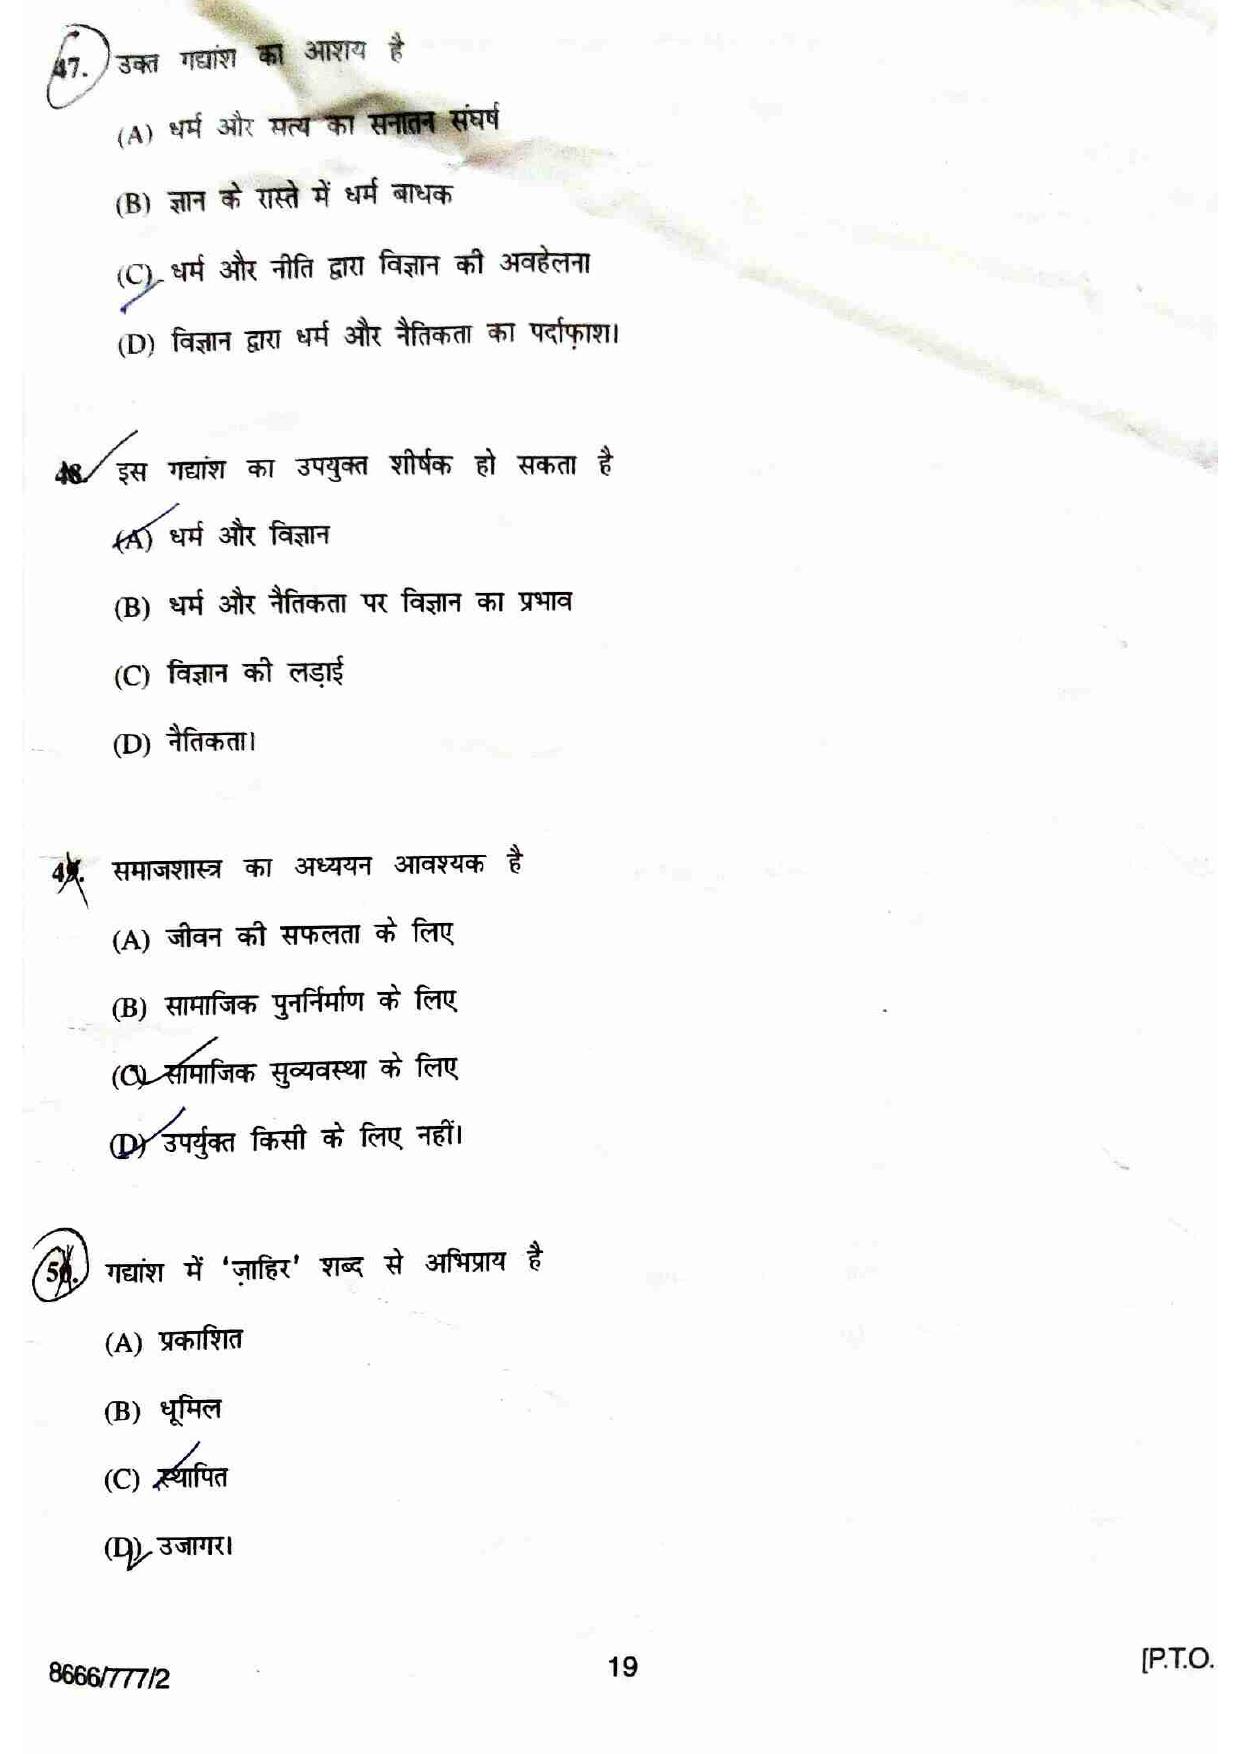 47. उक्त गद्यांश का आशय है
(A) धर्म और सत्य का सनातन संघर्ष
(B) ज्ञान के रास्ते में धर्म बाधक
(C) धर्म और नीति द्वारा विज्ञान की अवहेलना
(D) विज्ञान द्वारा धर्म और नैतिकता का पर्दाफ़ाश।
48. इस गद्यांश का उपयुक्त शीर्षक हो सकता है
(A) धर्म और विज्ञान
(B) धर्म और नैतिकता पर विज्ञान का प्रभाव
(C) विज्ञान की लड़ाई
(D) नैतिकता।
49. समाजशास्त्र का अध्ययन आवश्यक है
(A) जीवन की सफलता के लिए
(B) सामाजिक पुनर्निर्माण के लिए
(C) सामाजिक सुव्यवस्था के लिए
(D) उपर्युक्त किसी के लिए नहीं।
50. गद्यांश में ‘ज़ाहिर’ शब्द से अभिप्राय है
(A) प्रकाशित
(B) धूमिल
(C) स्थापित
(D) उजागर।
8666/777/2 19 [P.T.O.